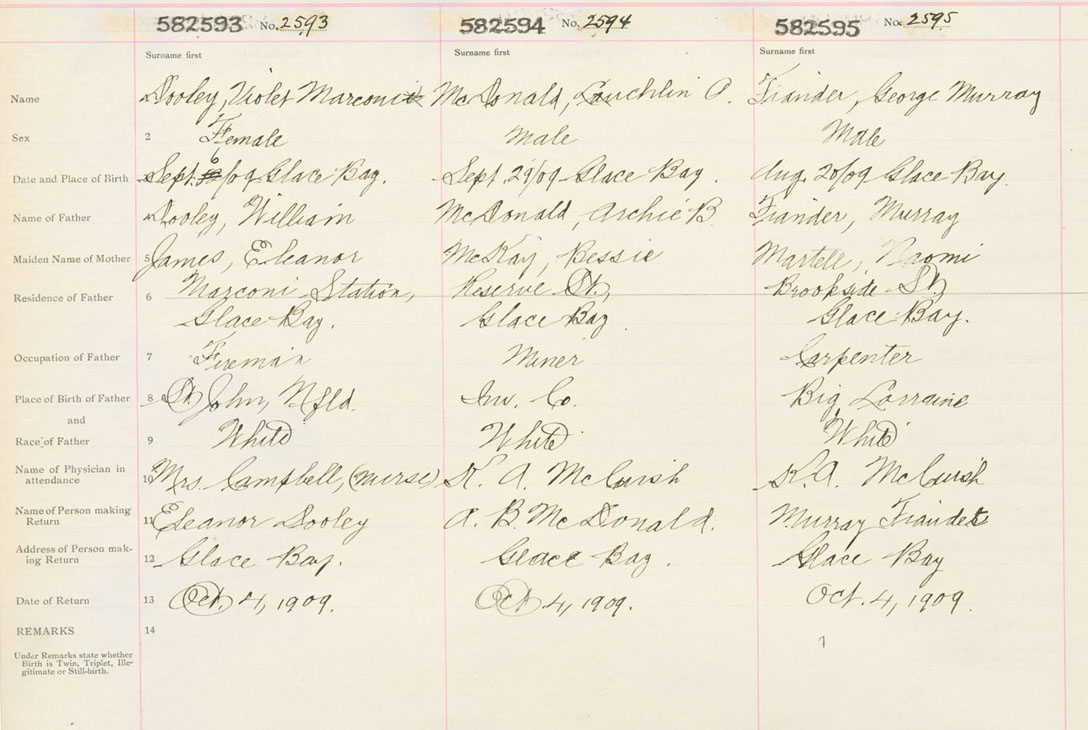 582593 No. 2593 582594 No. 2594 582595 No. 2595
Surname first Surname first Surname first
Name Dooley, Violet Marconi McDonald, Lauchlin A. Fiander, George Murray
Sex 2 Female Male Male
6
Date and Place of Birth Sept. /09 Glace Bay. Sept 29/09 Glace Bay. Aug. 20/09 Glace Bay.
Name of Father 4 Dooley, William McDonald, Archie B. Fiander, Murray
Maiden Name of Mother 5 James, Eleanor McKay, Bessie Martell, Naomi
Residence of Father 6 Marconi Station, Reserve St, Brookside St
Glace Bay. Glace Bay. Glace Bay.
Occupation of Father 7 Fireman Miner Carpenter
Place of Birth of Father 8 St John, Nfld. Inv. Co. Big Lorraine
and
Race of Father 9 White White White
Name of Physician in
attendance 10 Mrs. Campbell, (nurse) K. A. McCuish K.A. McCuish
Name of Person making
Return 11 Eleanor Dooley A. B. McDonald. Murray Fiander
Address of Person mak-
ing Return 12 Glace Bay. Glace Bay. Glace Bay
Date of Return 13 Oct. 4, 1909. Oct 4, 1909. Oct. 4, 1909.
REMARKS 14
Under Remarks state whether
Birth is Twin, Triplet, Ille-
gitimate or Still-birth.